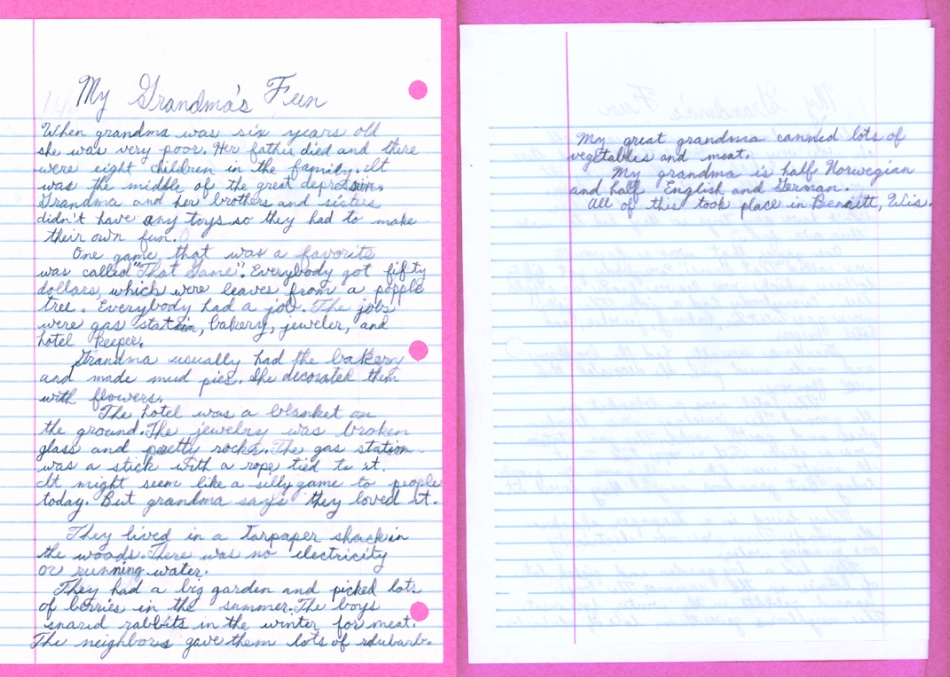 My Grandma's Fun
When grandma was six years old
she was very poor. Her father died and there
were eight children in the family. It
was the middle of the great depression.
Grandma and her brothers and sisters
didn't have any toys so they had to make
their own fun.
One game that was a favorite
was called "That Game". Everybody got fifty
dollars, which were leaves from a popple
tree. Everybody had a job. The jobs
were gas station, bakery, jeweler, and
hotel keeper.
Grandma usually had the bakery
and made mud pies. She decorated them
with flowers.
The hotel was a blanket on
the ground. The jewelry was broken
glass and pretty rocks. The gas station
was a stick with a rope tied to it.
It might seem like a silly game to people
today. But grandma says they loved it.
They lived in a tarpaper shack in
the woods. There was no electricity
or running water.
They had a big garden and picked lots
of berries in the summer. The boys
snared rabbits in the winter for meat.
The neighbors gave them lots of rhubarb.
My great grandma canned lots of
vegetables and meat.
My grandma is half Norwegian
and half English and German.
All of this took place in Bennett, Wis.